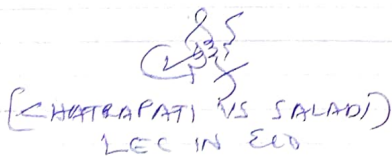 (CHATRAPATI VS SALADI)
LEC IN ECO